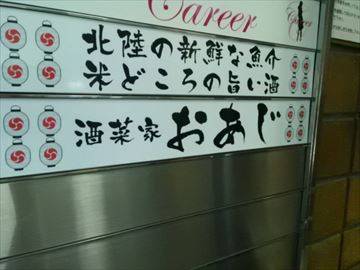 Career
北陸の新鮮な魚介
米どころの旨い酒
酒菜家 おあじ